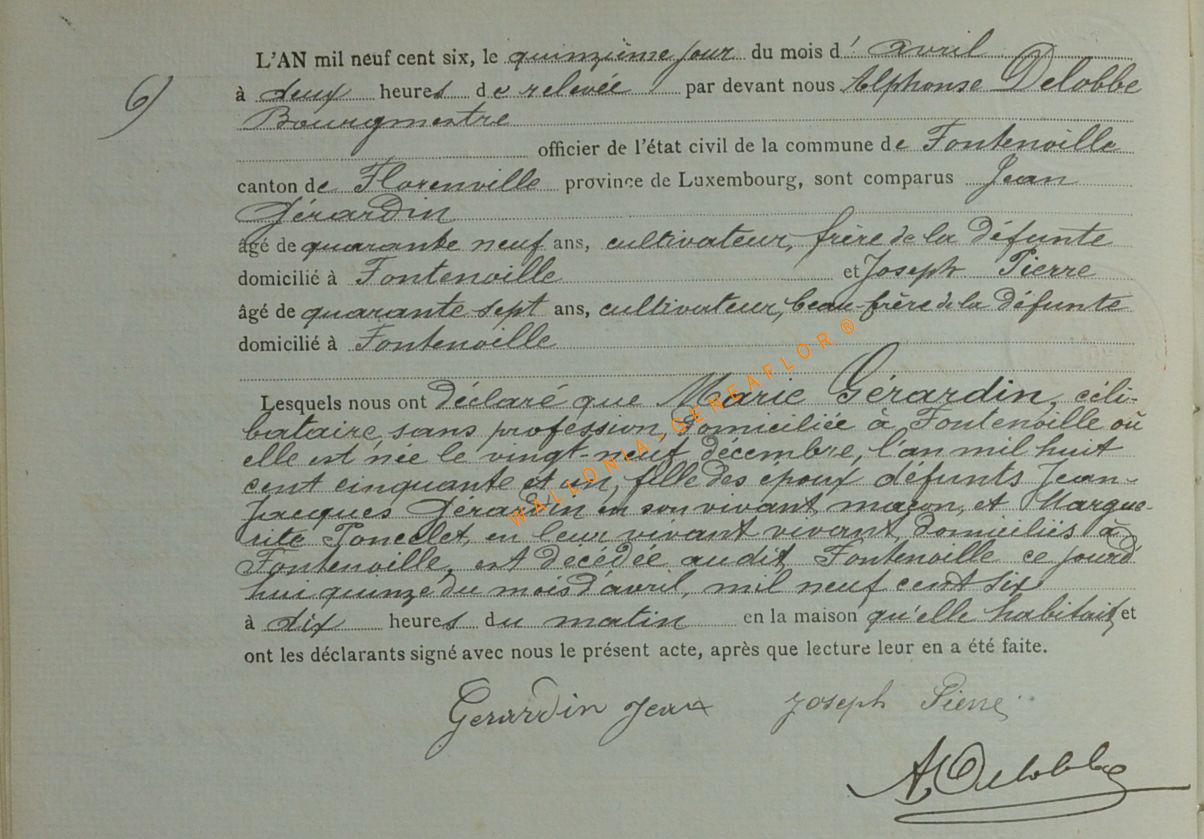 L'AN mil neuf cent six, le quinzième jour du mois d' avril
6)
à deux heures de relevée par devant nous Alphonse Delobbe
Bourgmestre
officier de l'état civil de la commune de Fontenoille
canton de Florenville province de Luxembourg, sont comparus Jean
Gérardin
âgé de quarante neuf ans, cultivateur, frère de la défunte
domicilié à Fontenoille et Joseph Pierre
âgé de quarante sept ans, cultivateur, beau-frère de la défunte
domicilié à Fontenoille
Lesquels nous ont déclaré que Marie Gérardin, céli-
bataire, sans profession, domiciliée à Fontenoille où
elle est née le vingt-neuf décembre, l'an mil huit
cent cinquante et un, fille des époux défunts Jean-
Jacques Gérardin en son vivant maçon, et Margue-
rite Poncelet, en leur vivant vivant domiciliés à
Fontenoille, est décédée audit Fontenoille ce jourd'
hui quinze du mois d'avril, mil neuf cent six
à dix heures du matin en la maison qu'elle habitait, et
ont les déclarants signé avec nous le présent acte, après que lecture leur en a été faite.
Gerardin Jean Joseph Pierre
A Delobbe
WALLONIA-GENEAFLOR ®